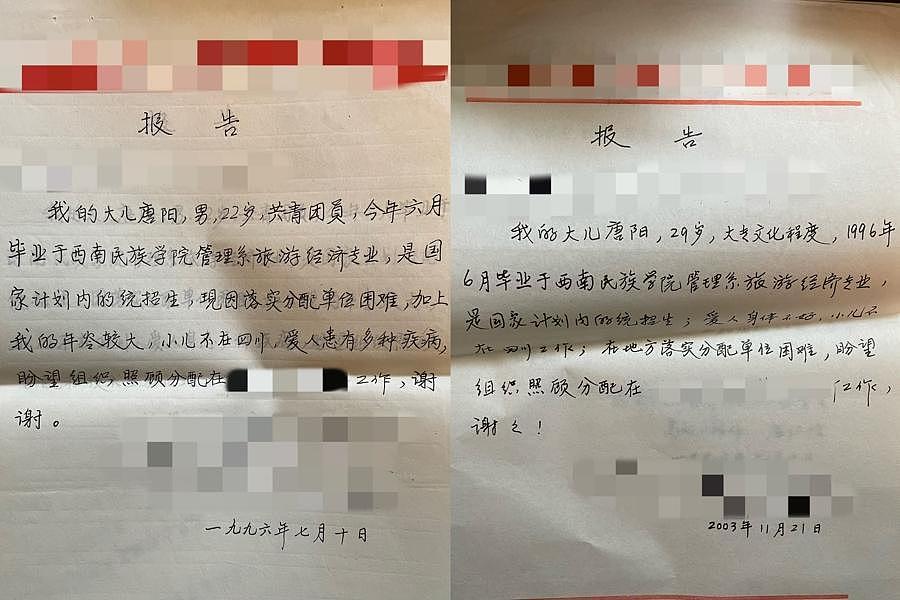 报 告
我的大儿唐阳，男，22岁，共青团员，今年六月
毕业于西南民族学院管理系旅游经济专业，是国
家计划内的统招生，现因落实分配单位困难，加上
我的年令较大，小儿不在四川，爱人患有多种疾病，
盼望组织照顾分配在 工作，谢
谢。
一九九六年七月十日
报 告
我的大儿唐阳，29岁，大专文化程度，1996年
6月毕业于西南民族学院管理系旅游经济专业，
是国家计划内的统招生；爱人身体不好，小儿不
在四川工作；在地方落实分配单位困难，盼望
组织照顾分配在 工作，
谢々！
2003年11月21日